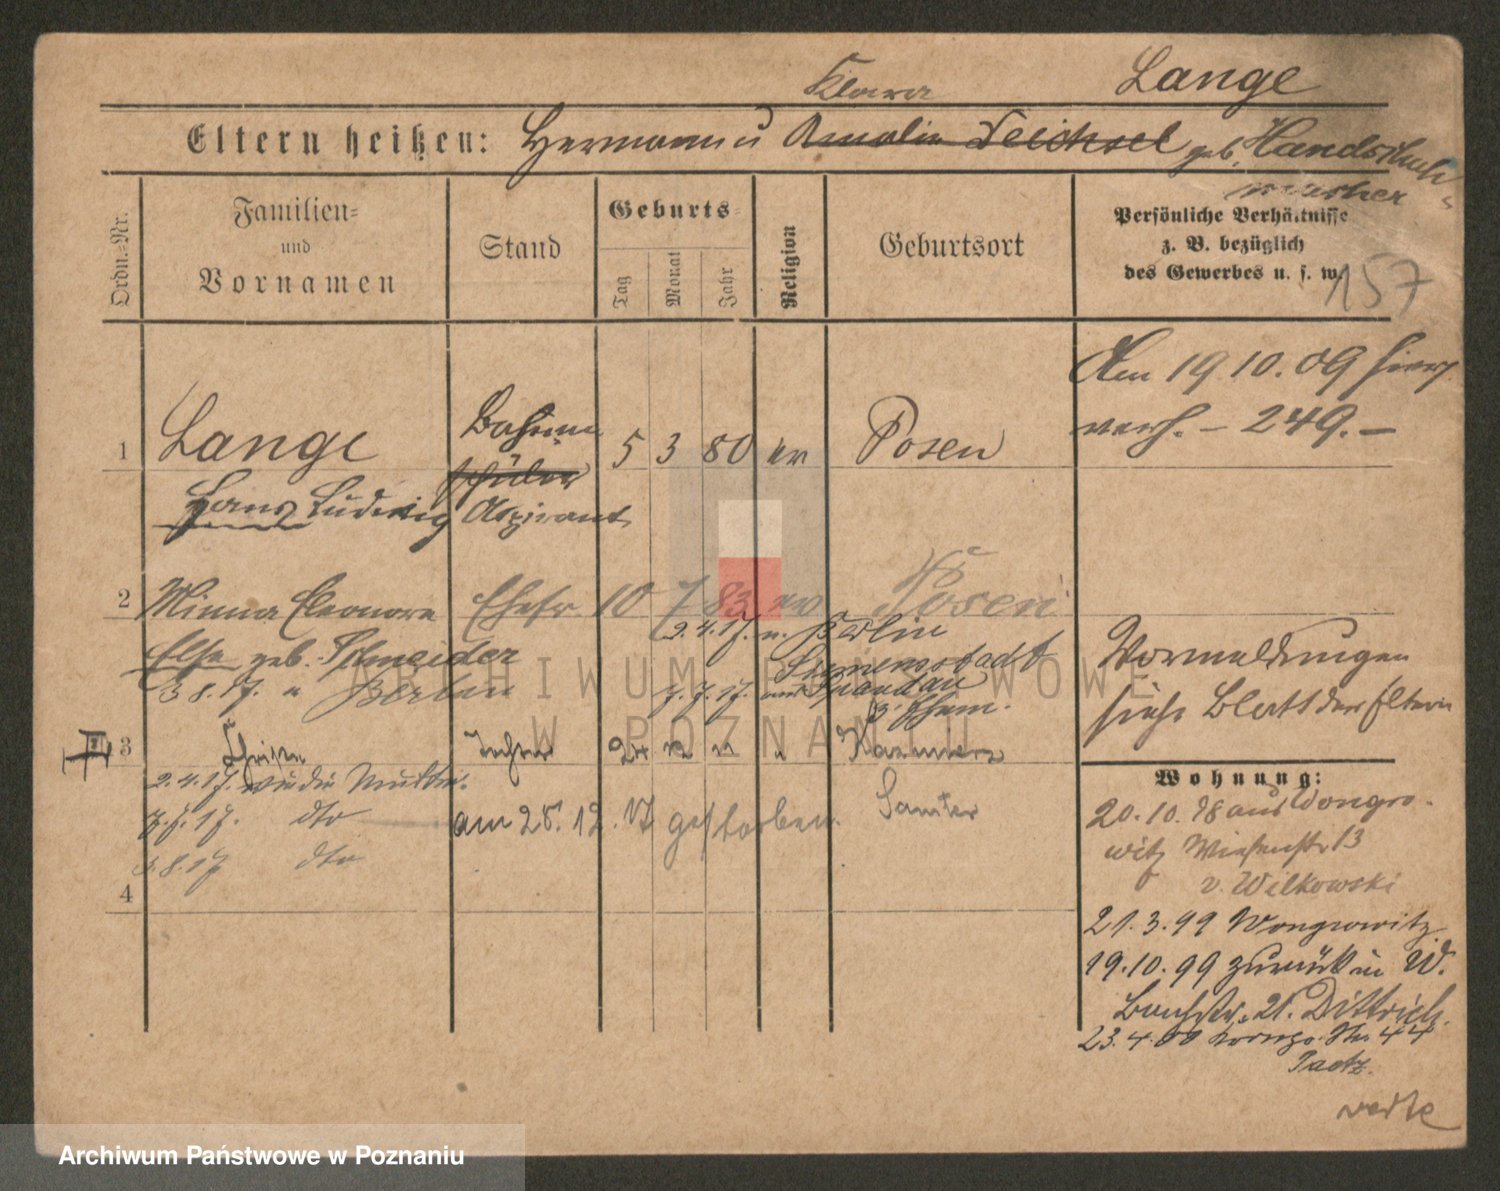 Klara Lange
Eltern heißen: Hermann u Amalie Teichsel geb. Handschuh-
macher
Ordn.-Nr.
Familien-
und
Vornamen
Stand
Geburts-
Tag
Monat
Jahr
Religion
Geburtsort
Persönliche Verhältnisse
z. B. bezüglich
des Gewerbes u. s. w.
157
Am 19.10.09 hier
verh. – 249. –
1 Lange 5 3 80 ev Posen
schüler
Hans Ludwig Aspirant
2 Minna Eleonore Ehefr 10 7 83 ev Posen
2.4.17. n. Berlin
Else geb. Schneider
Siemensstadt
3.8.17. n Berlin
7.7.17. aus Spandau
z. Ehem.
Vormeldungen
siehe Blatt der Eltern
3
2.4.17. wie die Mutter.
7.7.17. dto
am 28.12.17 gestorben.
Samter
3.8.17 dto
4
Wohnung:
20.10.98 aus Wongro-
witz Wiesenstr 13
v. Wilkowski
21.3.99 Wongrowitz
19.10.99 zurück in W.
21. Dittrich.
23.4.00 44
ARCHIWUM PAŃSTWOWE
W POZNANIU
Archiwum Państwowe w Poznaniu